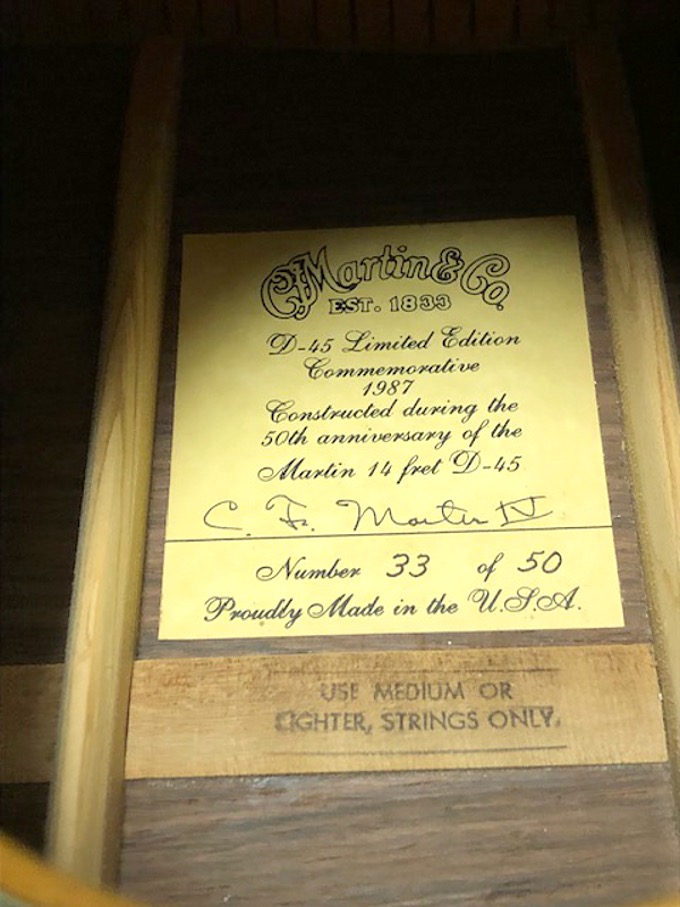 CF Martin & Co.
EST. 1833
D-45 Limited Edition
Commemorative
1987
Constructed during the
50th anniversary of the
Martin 14 fret D-45
C. F. Martin IV
Number 33 of 50
Proudly Made in the U.S.A.
USE MEDIUM OR
LIGHTER, STRINGS ONLY.